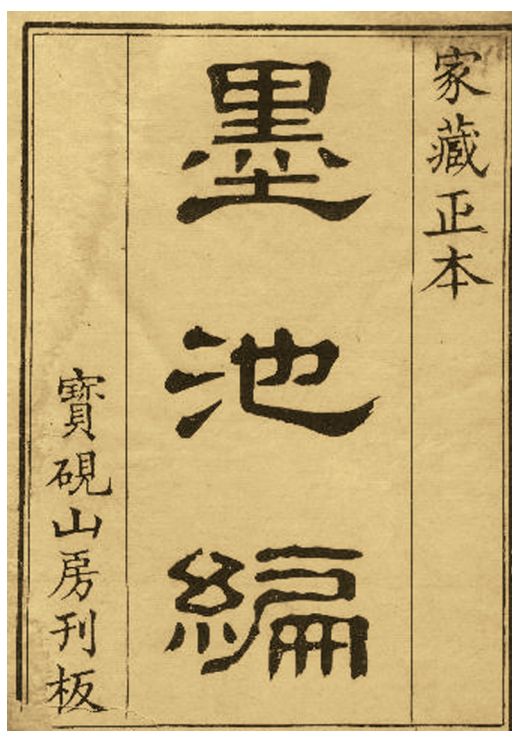 家藏正本
墨池編
寶硯山房刊板